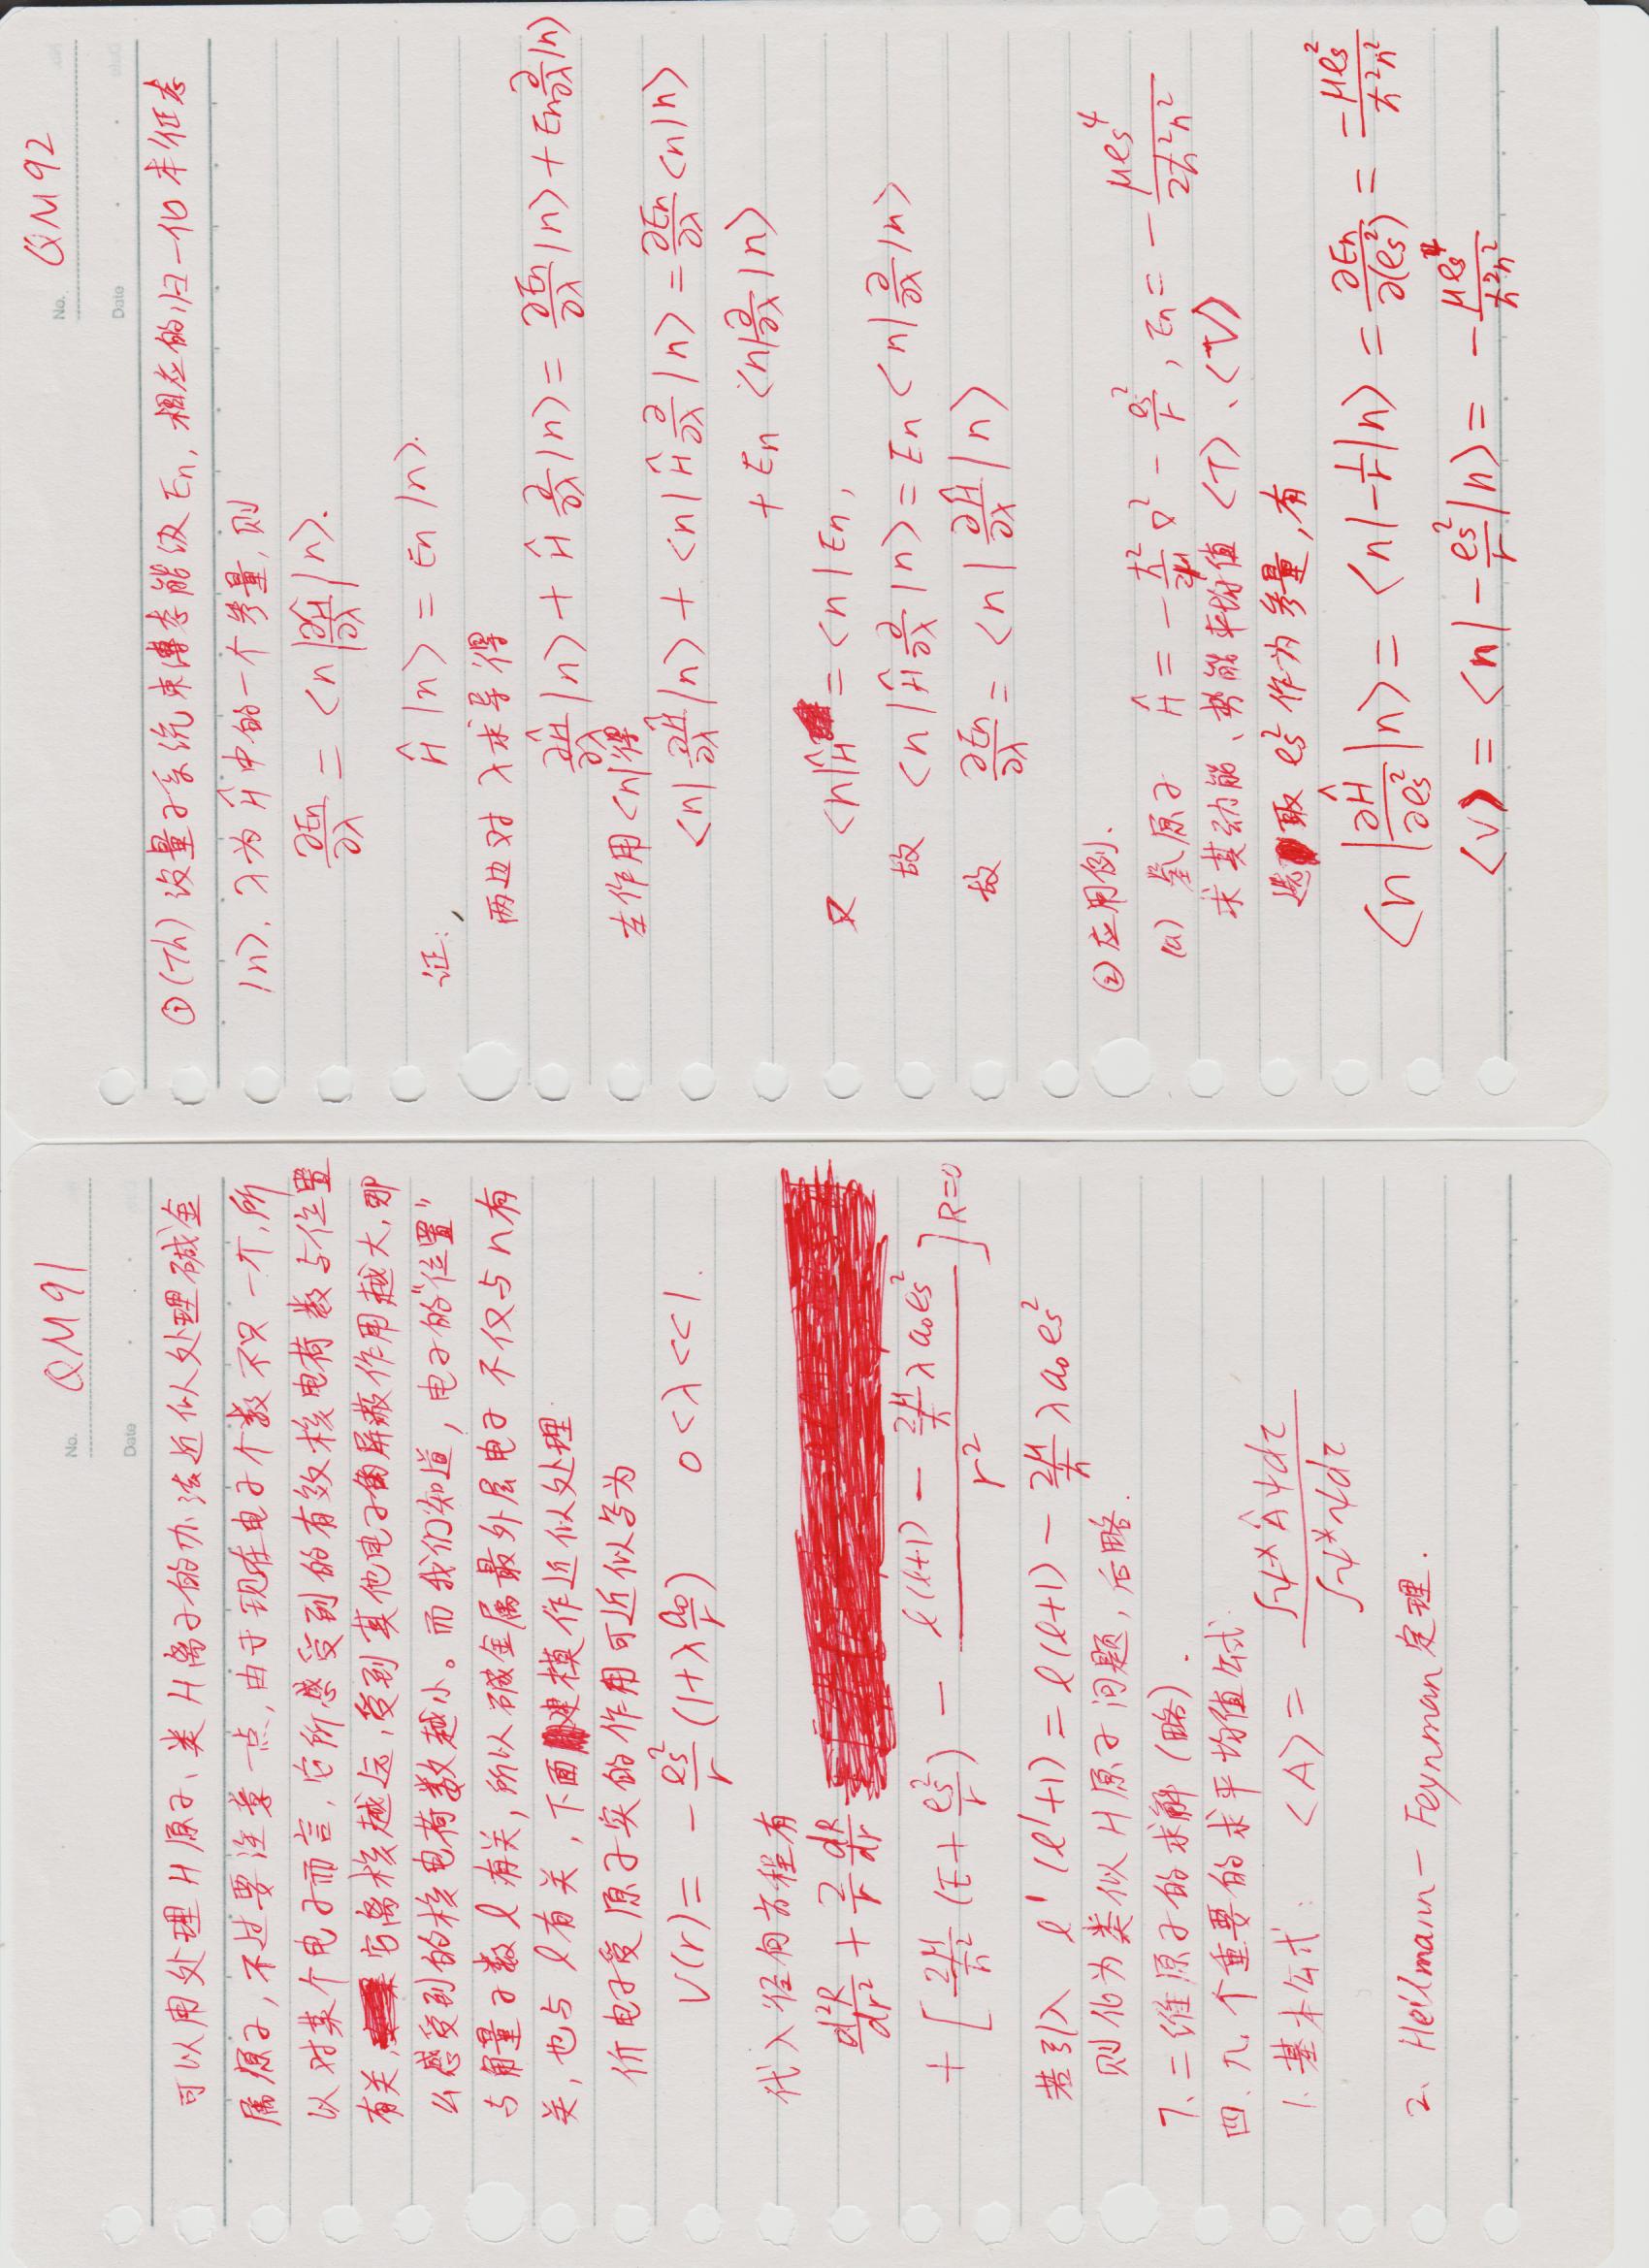 No. QM91
Date
可以用处理H原子、类H离子的办法近似处理碱金
属原子,不过要注意一点,由于现在电子个数不只一个,所
以对某个电子而言,它所感受到的有效核电荷数与位置
有关,它离核越远,受到其他电子的屏蔽作用越大,那
么感受到的核电荷数越小。而我们知道,电子的"位置"
与角量子数l有关,所以碱金属最外层电子不仅与n有
关,也与l有关,下面建模作近似处理.
价电子受原子实的作用可近似写为
V(r) = -\frac{e_s^2}{r}(1+λ\frac{a_0}{r}) 0<λ<<1.
代入径向方程有
\frac{d^2R}{dr^2} + \frac{2}{r}\frac{dR}{dr}
+ [\frac{2μ}{ħ^2}(E+\frac{e_s^2}{r}) - \frac{l(l+1) - \frac{2μ}{ħ}λa_0e_s^2}{r^2}]R=0
若引入 l'(l'+1) = l(l+1) - \frac{2μ}{ħ}λa_0e_s^2
则化为类似H原子问题,后略.
7、二维原子的求解(略).
四、几个重要的求平均值公式.
1.基本公式: <A> = \frac{∫ψ*Âψdτ}{∫ψ*ψdτ}
2. Heilmann-Feynman定理.
No. QM92
Date
①(Th)设量子系统束缚态能级En,相应的归一化本征态
|n>,λ为Ĥ中的一个参量,则
\frac{∂En}{∂λ} = <n|\frac{∂Ĥ}{∂λ}|n>.
证: Ĥ|n> = En|n>.
两边对λ求导得
\frac{∂Ĥ}{∂λ}|n> + Ĥ\frac{∂}{∂λ}|n> = \frac{∂En}{∂λ}|n> + En\frac{∂}{∂λ}|n>
左作用<n|得
<n|\frac{∂Ĥ}{∂λ}|n> + <n|Ĥ\frac{∂}{∂λ}|n> = \frac{∂En}{∂λ}<n|n>
+ En<n|\frac{∂}{∂λ}|n>
又 <n|Ĥ = <n|En,
故 <n|Ĥ\frac{∂}{∂λ}|n> = En<n|\frac{∂}{∂λ}|n>
故 \frac{∂En}{∂λ} = <n|\frac{∂Ĥ}{∂λ}|n>
②应用例.
(a) 氢原子 Ĥ = -\frac{ħ^2}{2μ}∇^2 - \frac{e_s^2}{r}, En = -\frac{μe_s^4}{2ħ^2n^2}
求其动能、势能平均值<T>、<V>
选取e_s^2作为参量,有
<n|\frac{∂Ĥ}{∂e_s^2}|n> = <n|-\frac{1}{r}|n> = \frac{∂En}{∂(e_s^2)} = \frac{-μe_s^2}{ħ^2n^2}
<V> = <n|-\frac{e_s^2}{r}|n> = -\frac{μe_s^4}{ħ^2n^2}